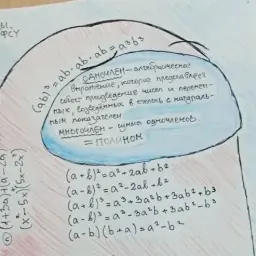 Ы.
ФСУ
(ab)³ = ab · ab · ab = a³b³
ОДНОЧЛЕН – алгебраическое
выражение, которое представляет
собой произведение чисел и перемен-
ных, возведённых в степень с натураль-
ным показателем
МНОГОЧЛЕН – сумма одночленов
= ПОЛИНОМ
(a+b)² = a² - 2ab + b²
(a-b)² = a² - 2ab + b²
(a+b)³ = a³ + 3a²b + 3ab² + b³
(a-b)³ = a³ - 3a²b + 3ab² - b³
(a-b)(b+a) = a² - b²